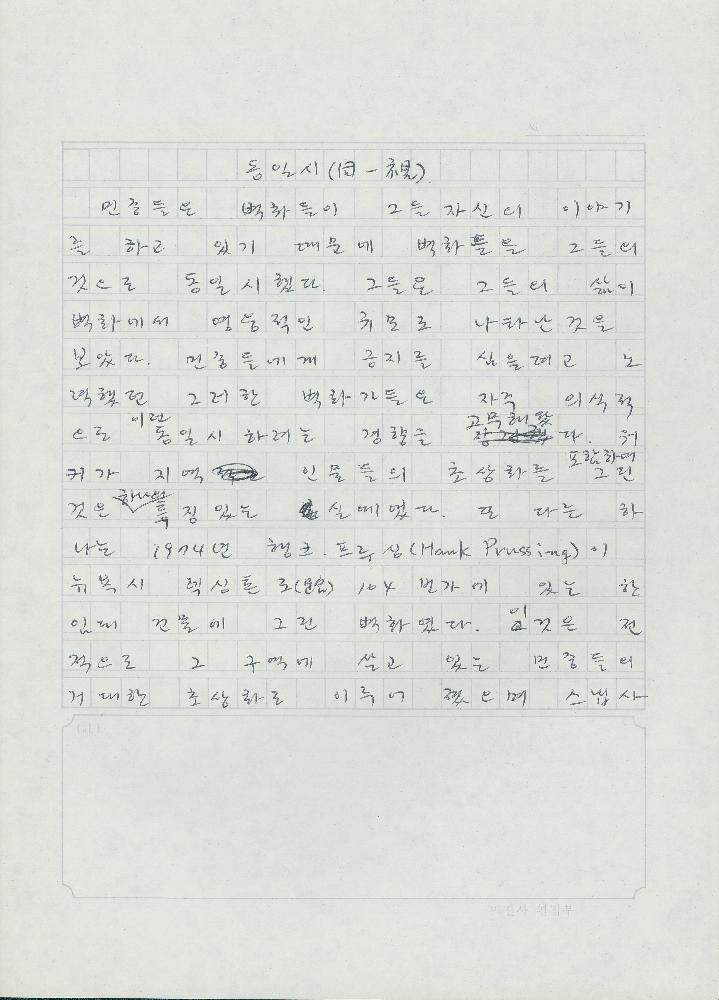 동일시(同一視)
민중들은 벽화들이 그들 자신의 이야기
를 하고 있기 때문에 벽화들을 그들의
것으로 동일시했다. 그들은 그들의 삶이
벽화에서 영웅적인 규모로 나타난 것을
보았다. 민중들에게 긍지를 심을려고 노
력했던 그러한 벽화가들은 자주 의식적
으로 이런 동일시 하려는 경향을 고무해왔다. 워
커가 지역 인물들의 초상화를 포함하여 그린
것은 하나의 특징있는 실예였다. 또 다른 하
나는 1974년 행크.프루싱(Hank Prussing)이
뉴욕시 렉싱톤 로(路) 104 번가에 있는 한
임대 건물에 그린 벽화였다. 이것은 전
적으로 그 구역에 살고 있는 민중들의
거대한 초상화로 이루어 졌으며 스냅사